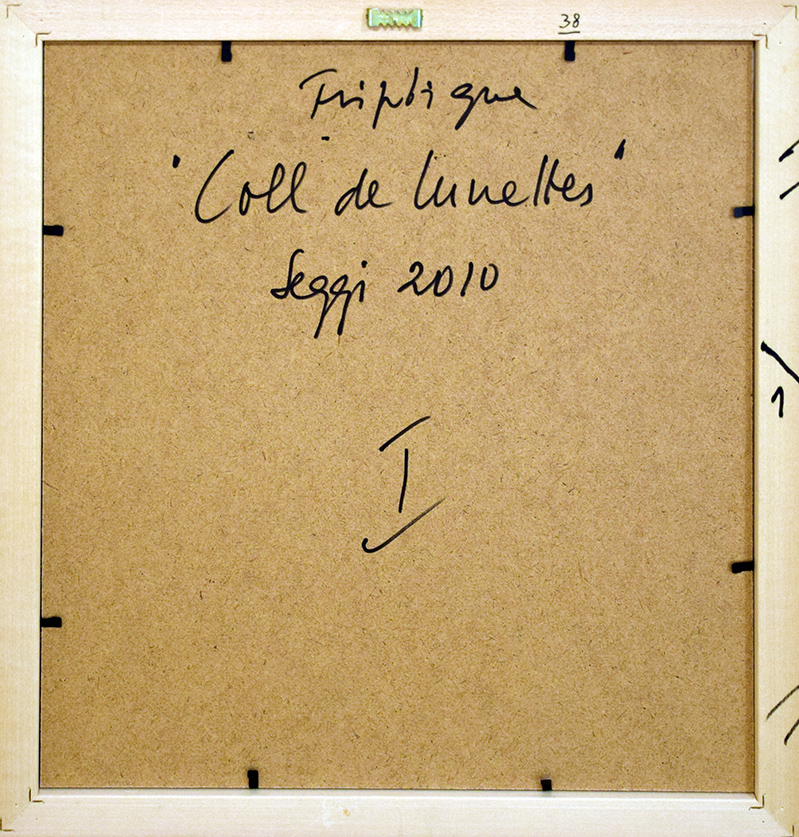 38
Triptique
"Coll de Lunettes"
Seggi 2010
I
1